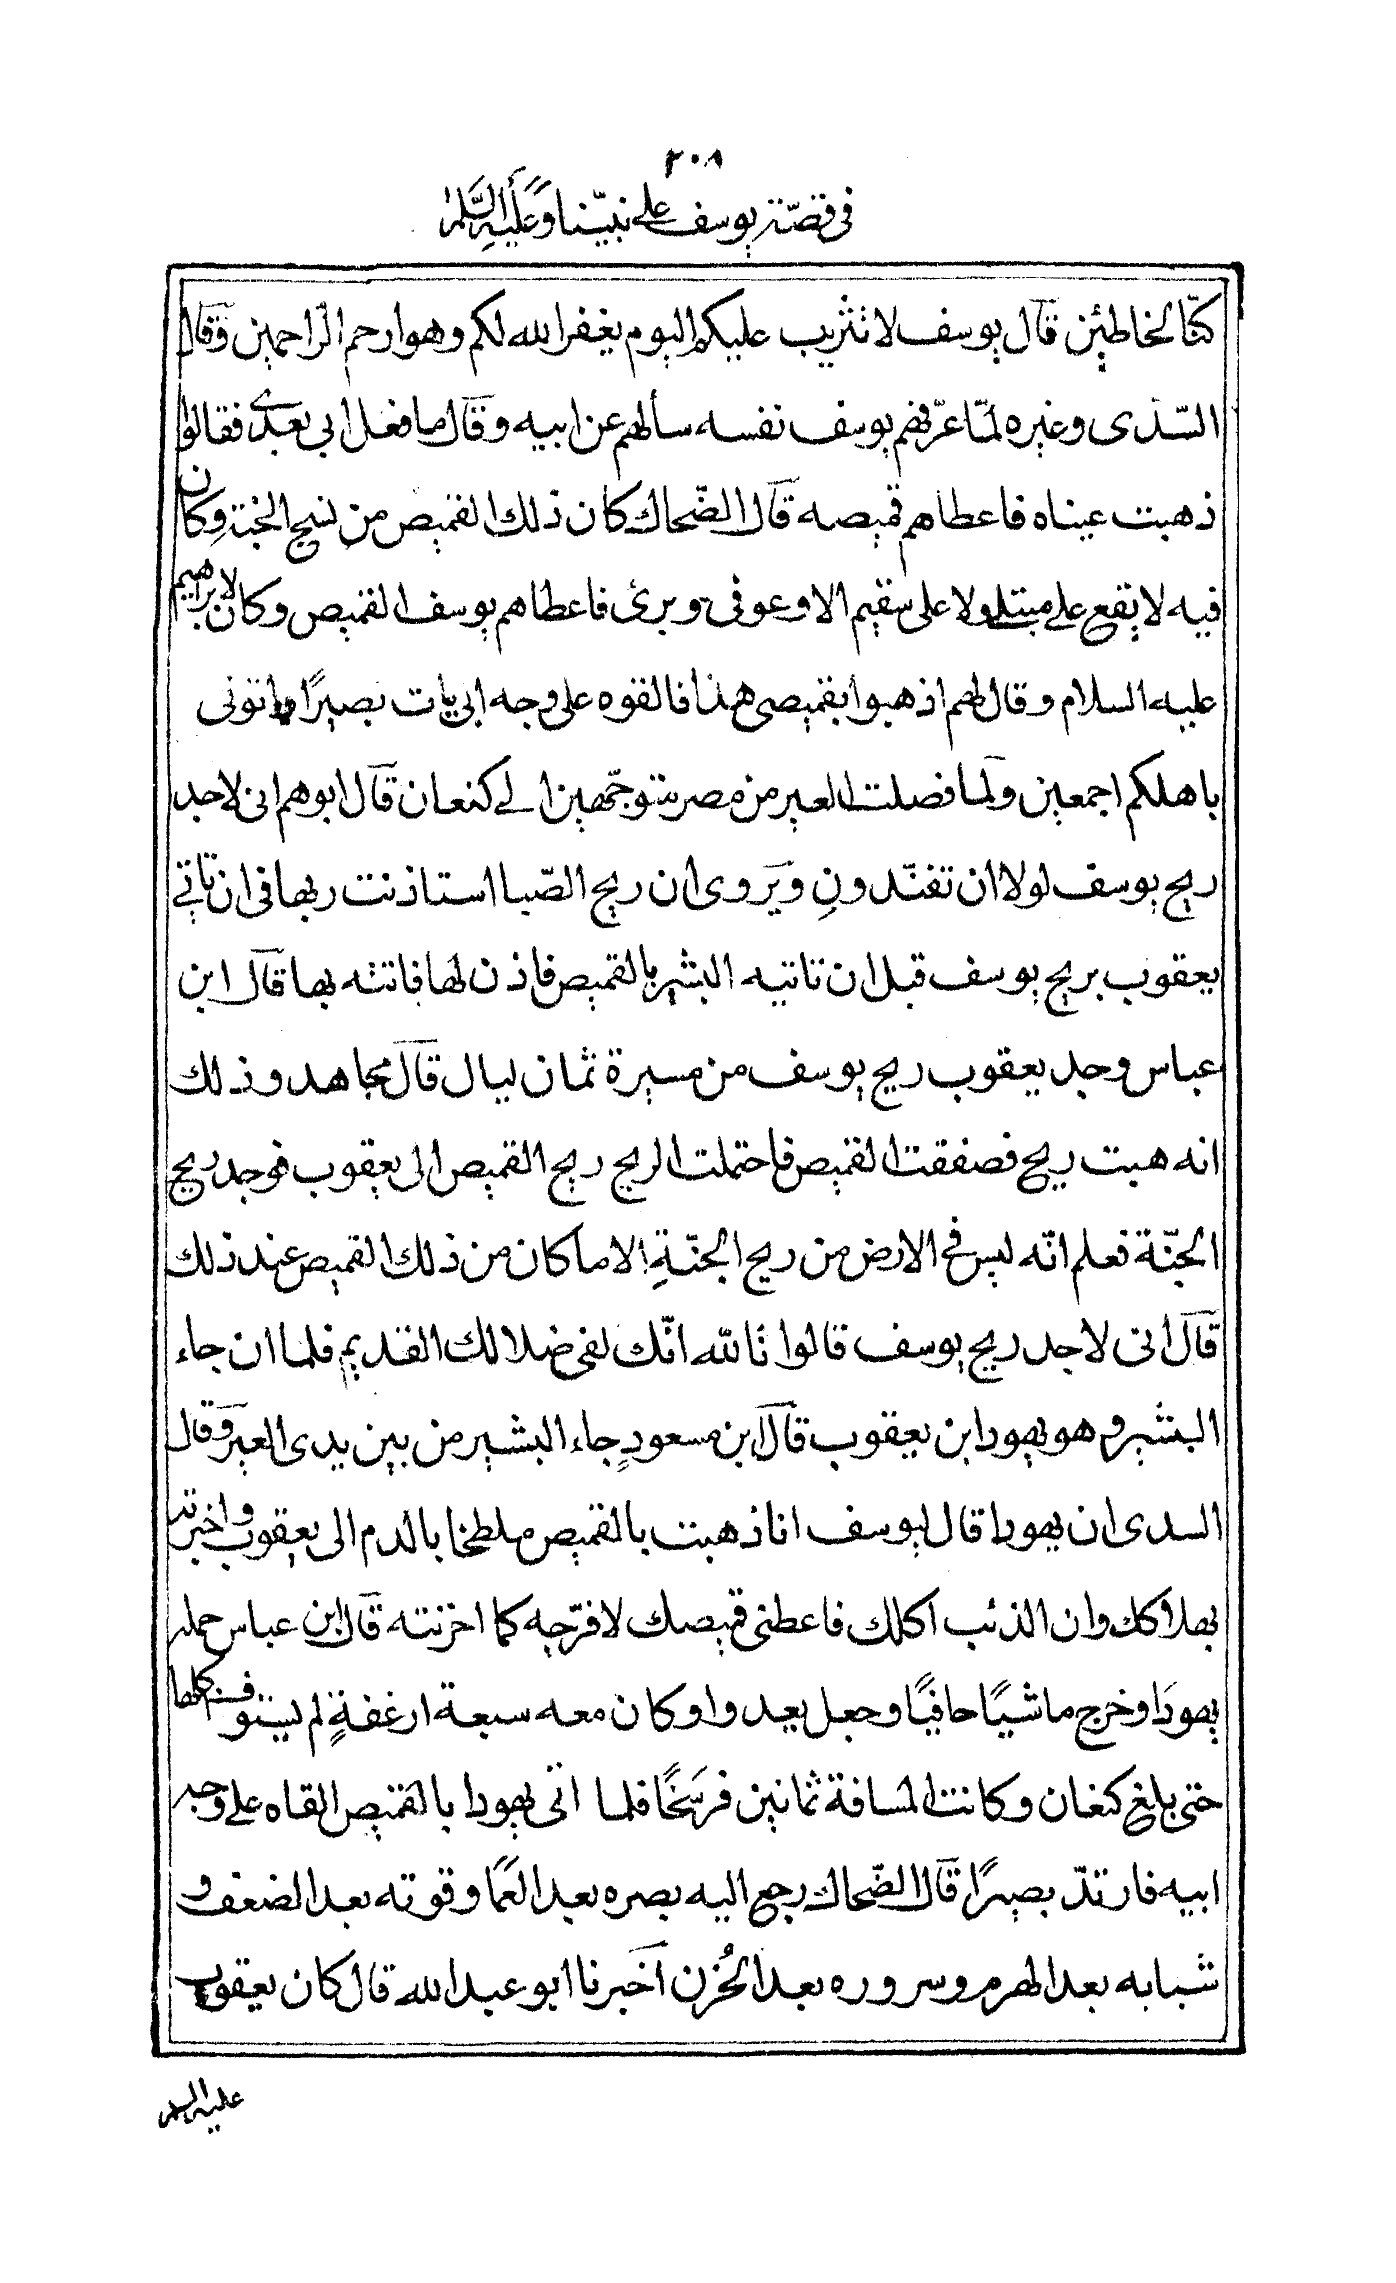 ٢٠٨
في قصّة يوسف على نبيّنا وعليه السّلام
كنّا لخاطئين قال يوسف لا تثريب عليكم اليوم يغفر الله لكم وهو ارحم الرّاحمين وقال
السّدى وغيره لمّا عرّفهم يوسف نفسه سألهم عن ابيه وقال ما فعل ابى بعدى فقالوا
ذهبت عيناه فاعطاهم قميصه قال الضّحاك كان ذلك القميص من نسج الجنة وكان
فيه لا يقع على مبتلى ولا على سقيم الا وعوفى وبرئ فاعطاهم يوسف القميص وكان لابراهيم
عليه السلام وقال لهم اذهبوا بقميصى هذا فالقوه على وجه ابى يات بصيرًا واتونى
باهلكم اجمعين ولما فصلت العير من مصر متوجّهين الى كنعان قال ابوهم انى لاجد
ريح يوسف لولا ان تفنّدونِ ويروى ان ريح الصّبا استاذنت ربها فى ان تاتى
يعقوب بريح يوسف قبل ان تاتيه البشير بالقميص فاذن لها فاتته بها قال ابن
عباس وجد يعقوب ريح يوسف من مسيرة ثمان ليال قال مجاهد وذلك
انه هبت ريح فصفقت القميص فاحتملت الريح ريح القميص الى يعقوب فوجد ريح
الجنّة فعلم انّه ليس فى الارض من ريح الجنّةِ الا ما كان من ذلك القميص عند ذلك
قال انى لاجد ريح يوسف قالوا تالله انّك لفى ضلالك القديم فلما ان جاء
البشير وهو يهودا بن يعقوب قال ابن مسعودٍ جاء البشير من بين يدى العير وقال
السدى ان يهودا قال ليوسف انا ذهبت بالقميص ملطخا بالدم الى يعقوب واخبرته
بهلاكك وان الذئب اكلك فاعطنى قميصك لافرّحه كما احزنته قال ابن عباس حمله
يهودَا وخرج ماشيًا حافيًا وجعل يعدوا وكان معه سبعة ارغفةٍ لم يستوف اكلها
حتى بلغ كنعان وكانت المسافة ثمانين فرسَخًا فلما اتى يهودا بالقميص القاه على وجه
ابيه فارتدّ بصيرًا قال الضّحاك رجع اليه بصره بعد العَمَا وقوته بعد الضعف و
شبابه بعد الهرم وسروره بعد الحُزن اخبرنا ابو عبد الله قال كان يعقوب
عليه السلام